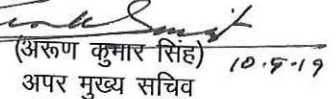 (अरूण कुमार सिंह) 10.9.19
अपर मुख्य सचिव